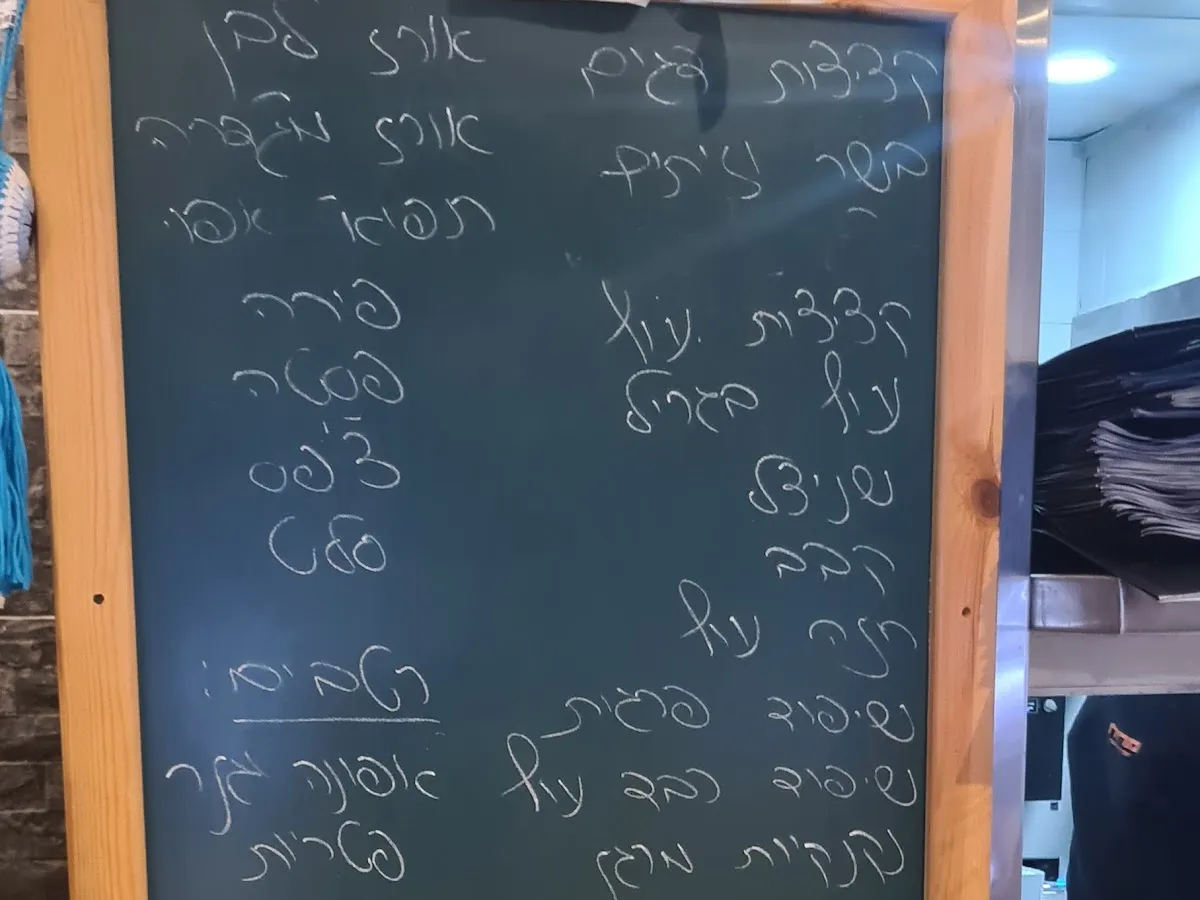 קציצות דגים
בשר זיתים
קציצות עוף
עוף בגריל
שניצל
קבב
חזה עוף
שיפוד פרגית
שיפוד כבד עוף
נקניקיות מרגז
אורז לבן
אורז מג'דרה
תפוא" אפוי
פירה
פסטה
צ'יפס
סלט
רטבים:
אפונה גזר
פטריות